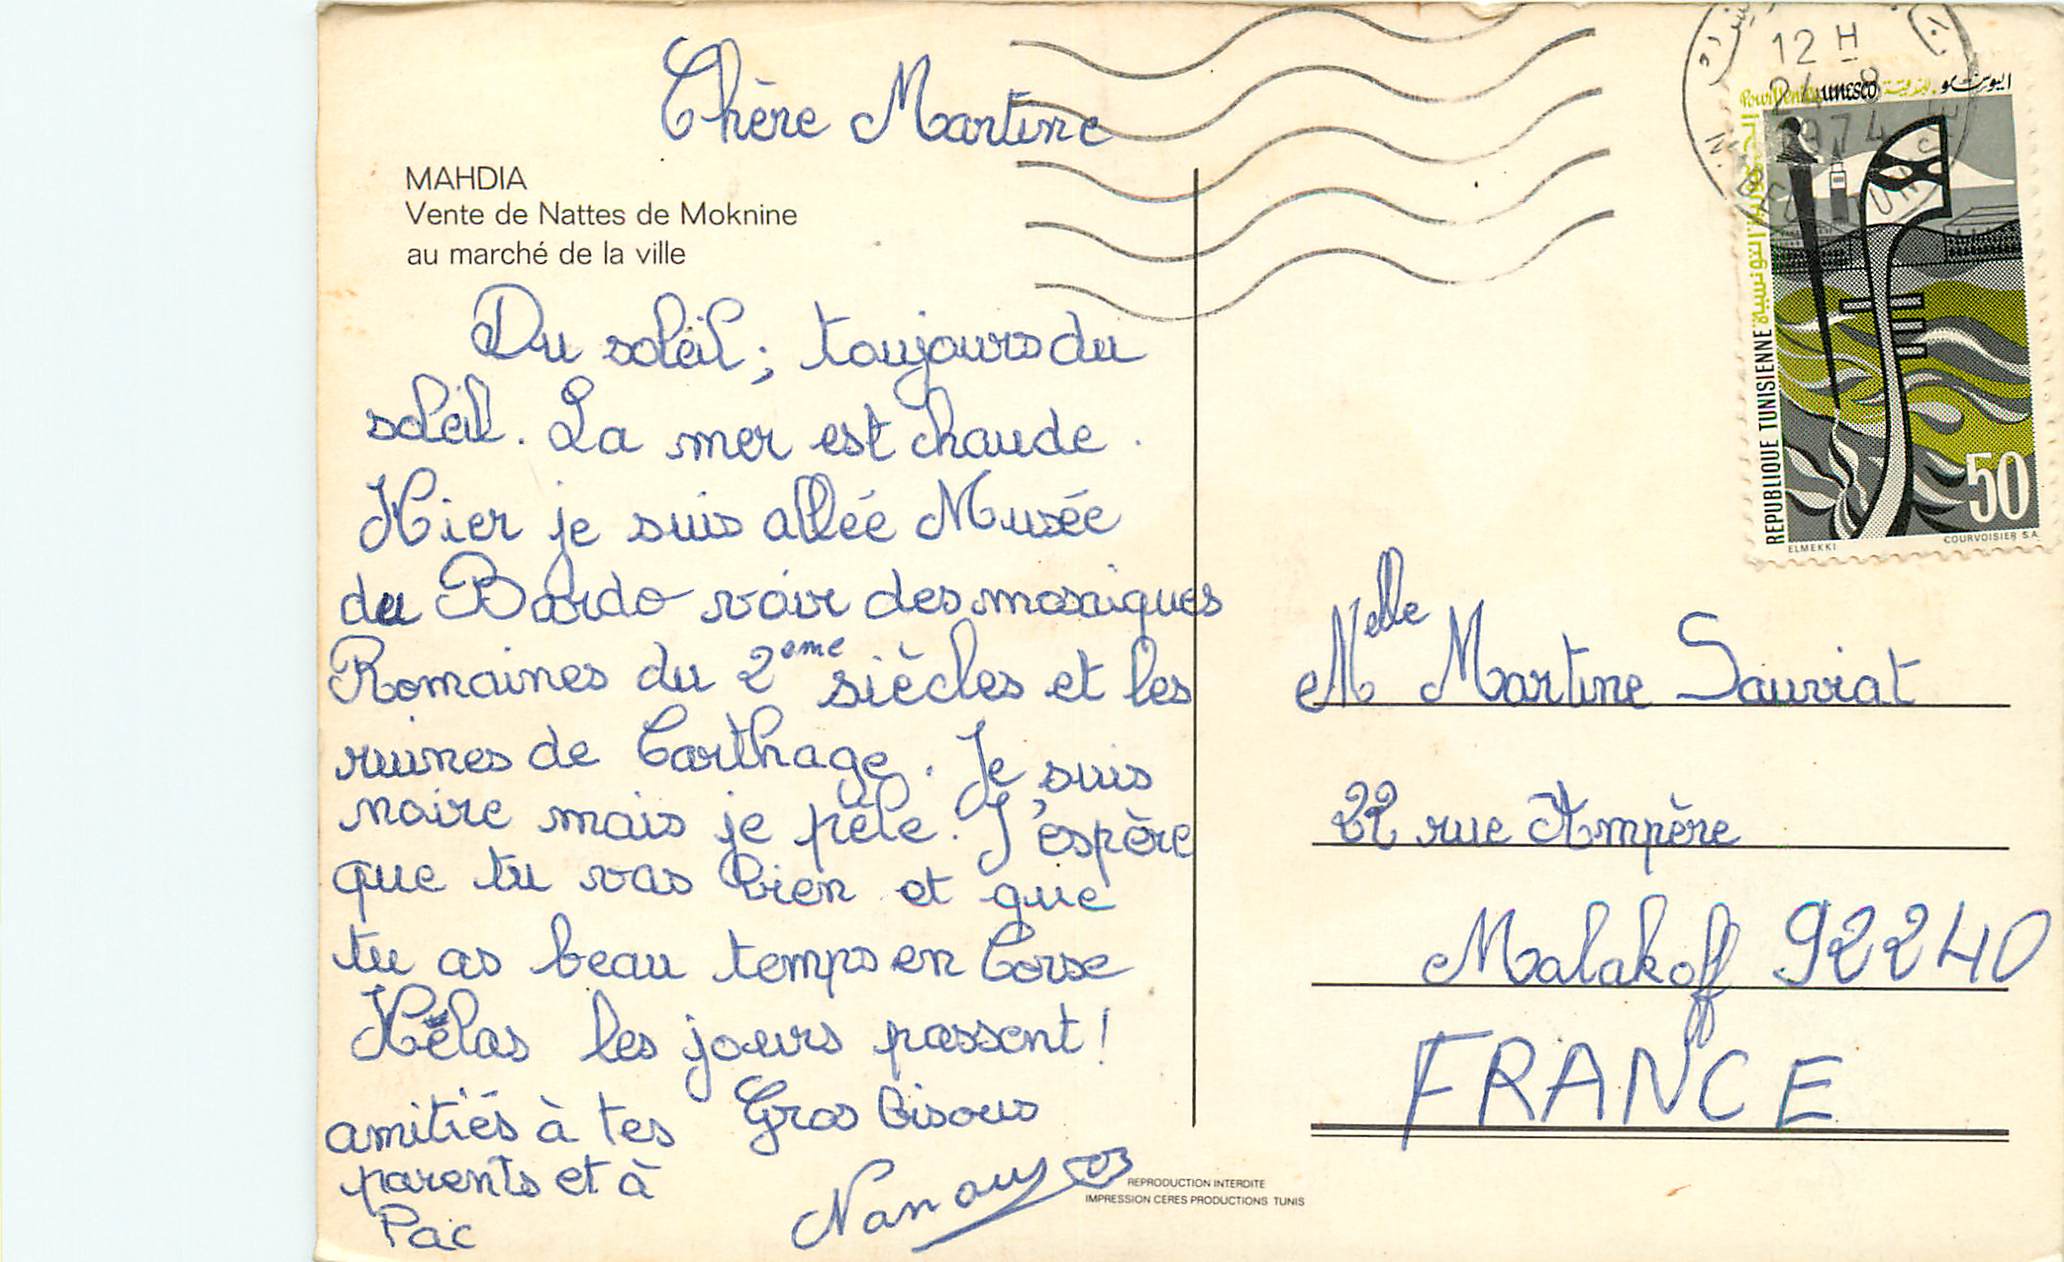 Chère Martine
MAHDIA
Vente de Nattes de Moknine
au marché de la ville
Du soleil ; toujours du
soleil. La mer est chaude.
Hier je suis allée Musée
du Bardo voir des mosaiques
Romaines du 2eme siècles et les
ruines de Carthage. Je suis
noire mais je pèle. J'espère
que tu vas bien et que
tu as beau temps en Corse
Hélas les jours passent !
amitiés à tes
parents et à
Pac
Gros bisous
Nanou
REPRODUCTION INTERDITE
IMPRESSION CERES PRODUCTIONS TUNIS
12 H
24 - 8
1974
Pour Venise unesco
REPUBLIQUE TUNISIENNE الجمهورية التونسية
50
ELMEKKI
COURVOISIER S.A.
Melle Martine Sauviat
22 rue Ampère
Malakoff 92240
FRANCE